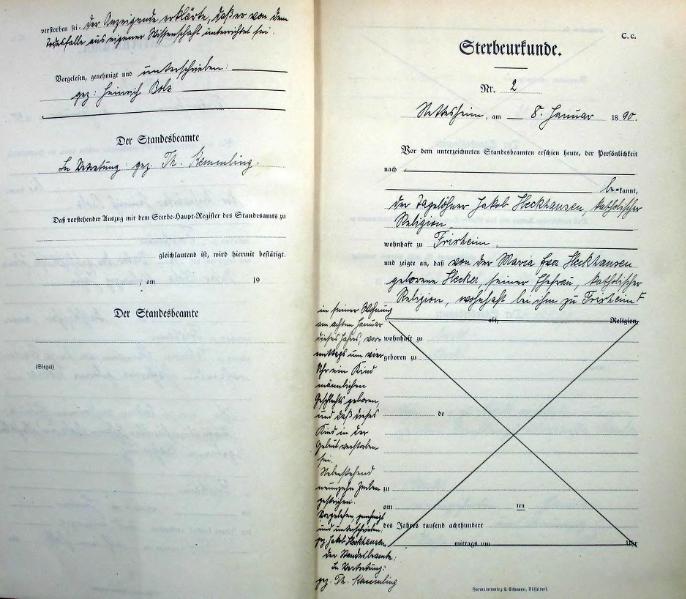 verstorben sei. Der Anzeigende erklärte, daß er von dem
Todesfalle aus eigener Wissenschaft unterrichtet sei.
Vorgelesen, genehmigt und unterschrieben:
gez: Heinrich Bolz
Der Standesbeamte
In Vertretung: gez. Th. Kemmling.
Daß vorstehender Auszug mit dem Sterbe-Haupt-Register des Standesamts zu
gleichlautend ist, wird hiermit bestätigt.
, am 19
Der Standesbeamte
(Siegel)
C. c.
Sterbeurkunde.
Nr. 2
am 8. Januar 1890.
Vor dem unterzeichneten Standesbeamten erschien heute, der Persönlichkeit
nach
bekannt,
der Tagelöhner Jakob Heckhausen, katholischer
Religion
wohnhaft zu Frixheim,
und zeigte an, daß von der Maria Eva Heckhausen
geborene Hecker, seiner Ehefrau, katholischer
Religion, wohnhaft bei ihm zu Frixheim F
alt, Religion,
wohnhaft zu
geboren zu
de
zu
am ten
des Jahres tausend achthundert
mittags um Uhr
in seiner Wohnung
am achten Januar
dieses Jahres, vor-
mittags um vier
Uhr ein Kind
männlichen
Geschlechts geboren,
und daß dieses
Kind in der
Geburt verstorben
sei.
Nebenstehend
neunzehn Zeilen
gestrichen.
Vorgelesen, genehmigt
und unterschrieben:
gez. Jakob Heckhausen.
Der Standesbeamte:
In Vertretung:
gez. Th. Kemmling